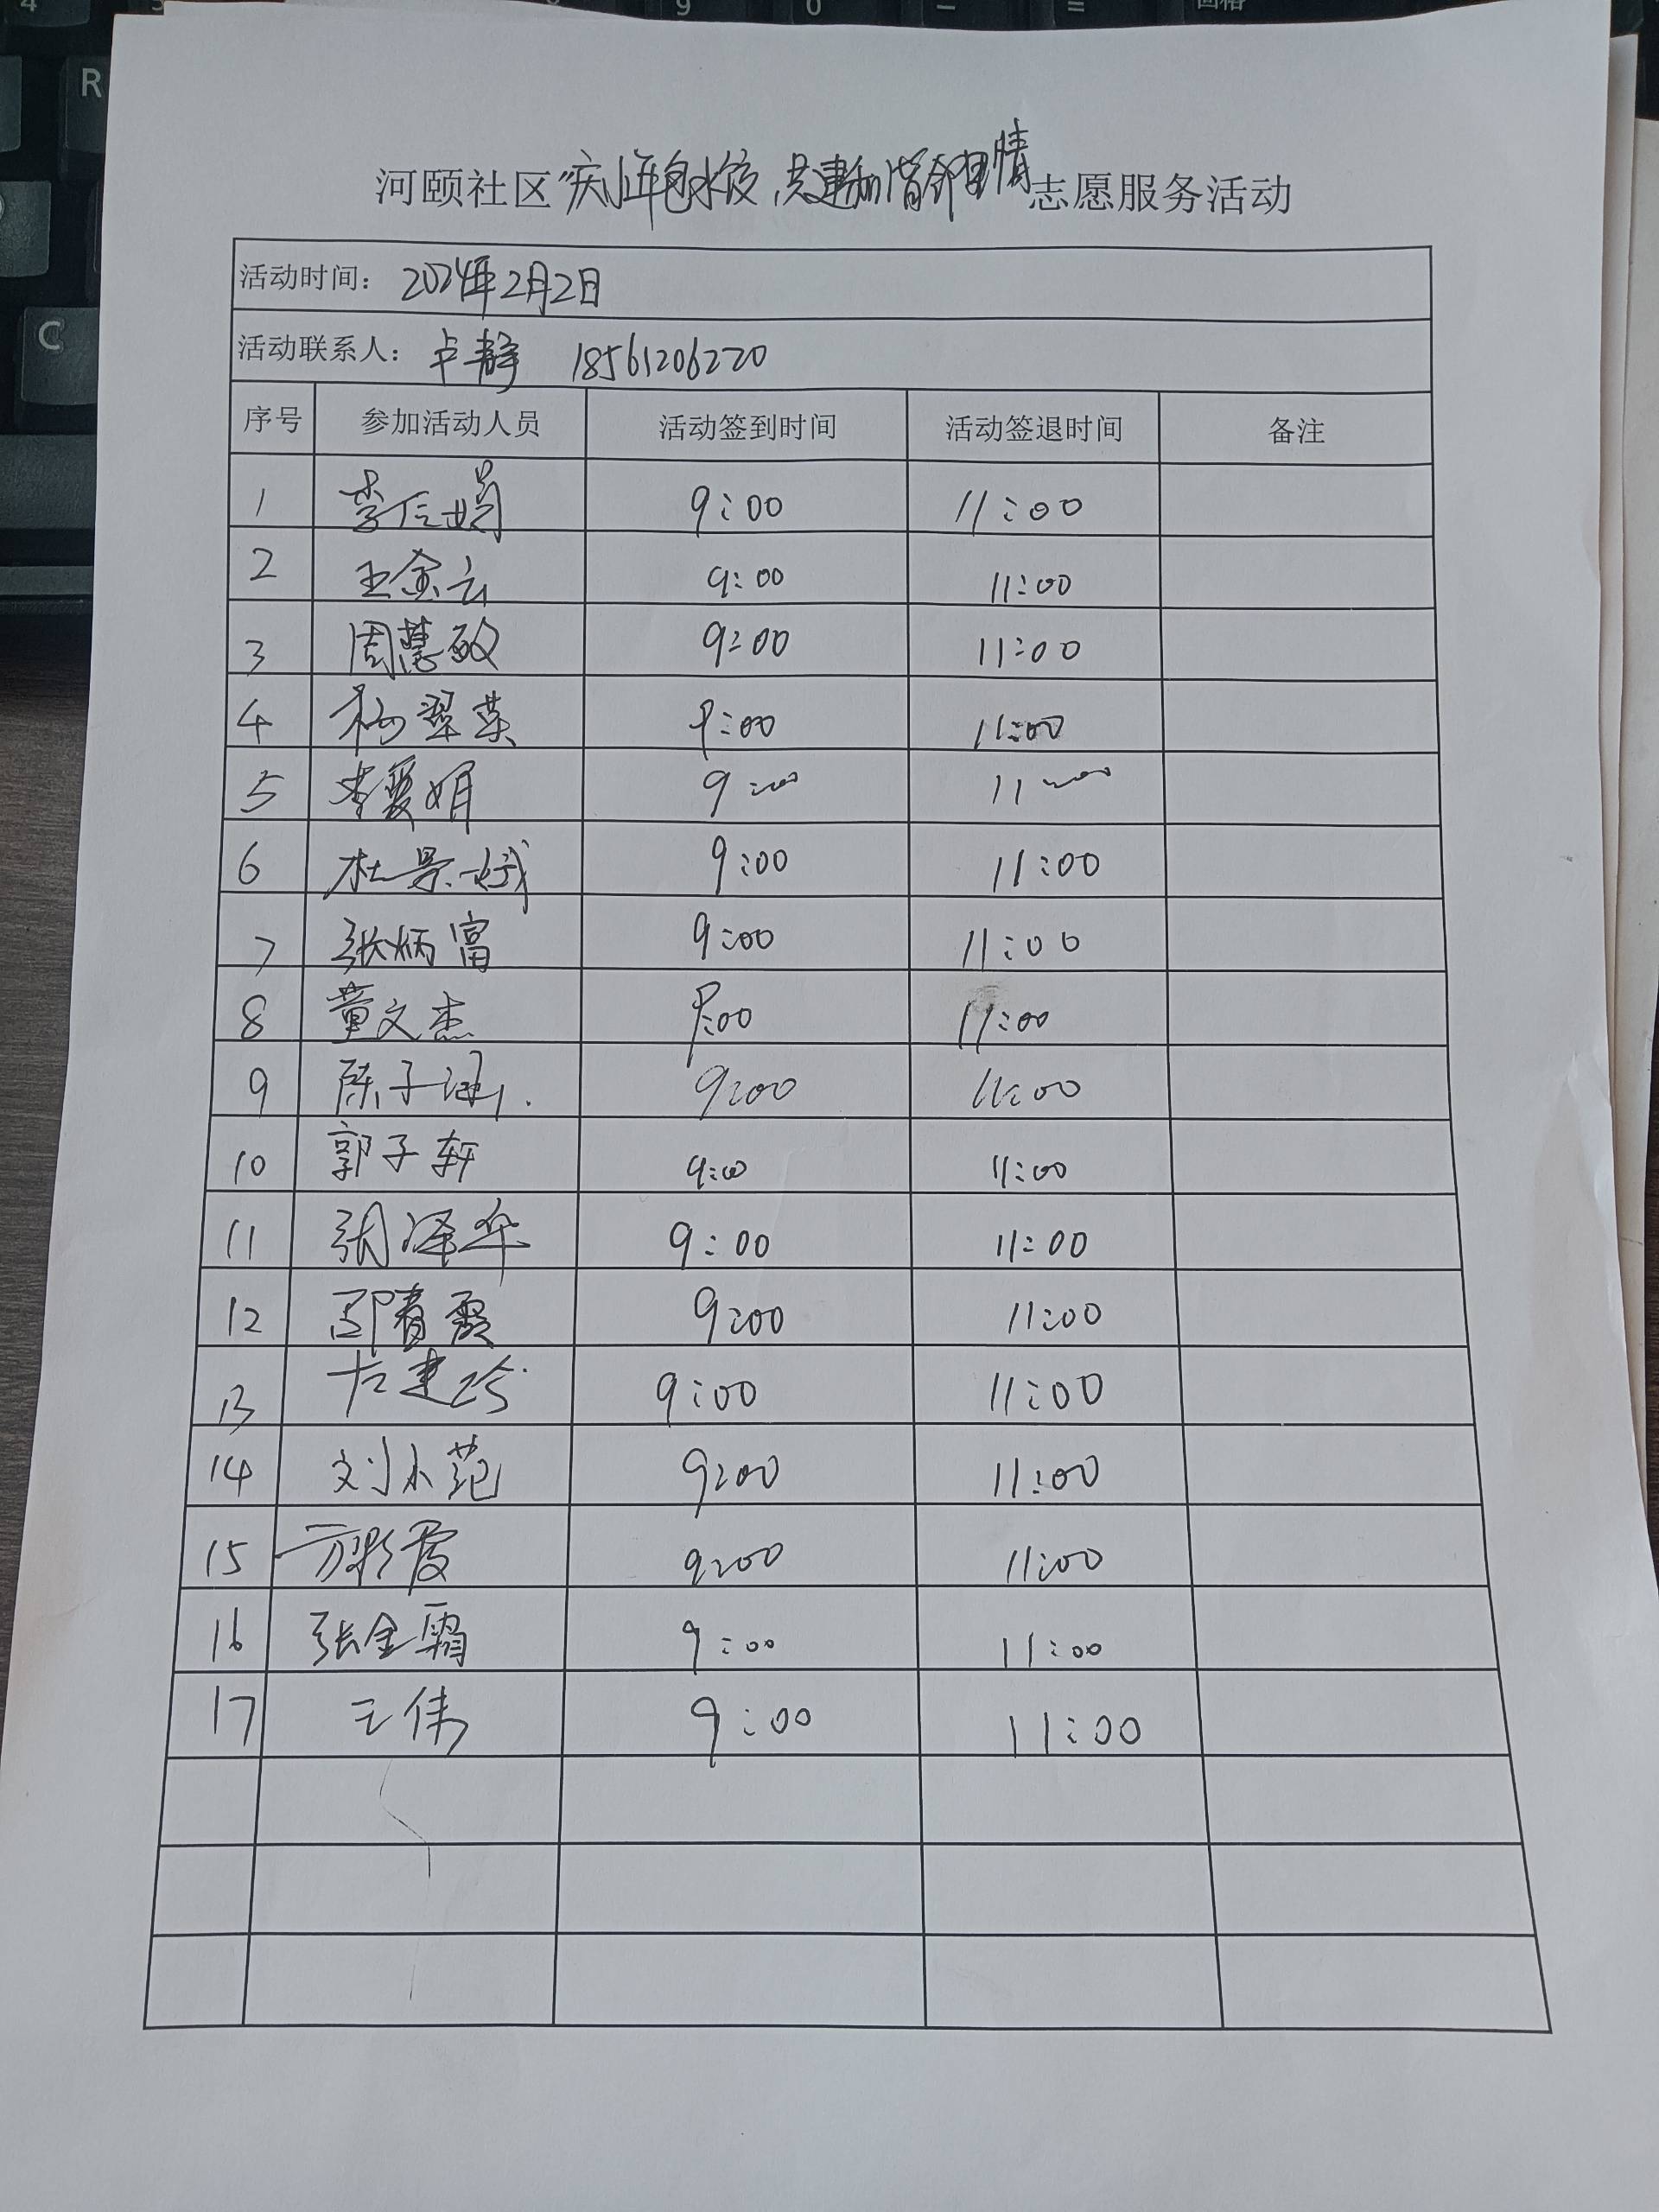 河颐社区"庆小年包水饺,共建和谐邻里情志愿服务活动
活动时间: 2024年2月2日
活动联系人: 卢静 18561206220
序号 参加活动人员 活动签到时间 活动签退时间 备注
1 李仁娟 9:00 11:00
2 王金云 9:00 11:00
3 周慧敏 9:00 11:00
4 杨翠英 9:00 11:00
5 李爱娟 9:00 11:00
6 杜景娥 9:00 11:00
7 张炳富 9:00 11:00
8 董文杰 9:00 11:00
9 陈子涵 9:00 11:00
10 郭子轩 9:00 11:00
11 张泽华 9:00 11:00
12 邵青霞 9:00 11:00
13 9:00 11:00
14 刘小范 9:00 11:00
15 方彩霞 9:00 11:00
16 张金霜 9:00 11:00
17 王伟 9:00 11:00